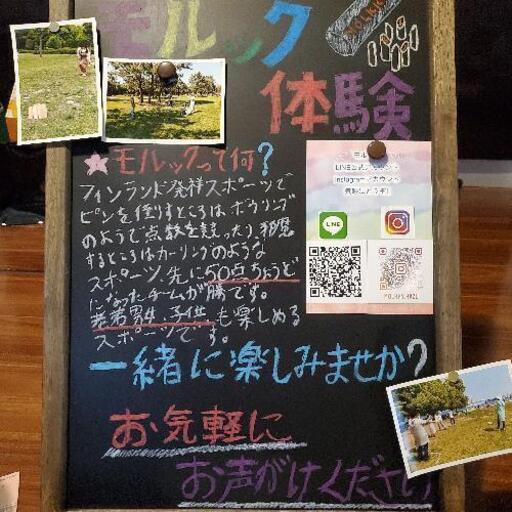 モルック
体験
MOLKKY
★モルックって何?
フィンランド発祥スポーツで
ピンを倒すところはボウリング
のようで点数を競ったり、邪魔
するところはカーリングのような
スポーツ 先に50点ちょうど
になったチームが勝です。
老若男女、子供、も楽しめる
スポーツです。
モルック
LINE公式アカウント
Instagramアカウント
LINE
一緒に楽しみませんか?
お気軽に
お声がけください